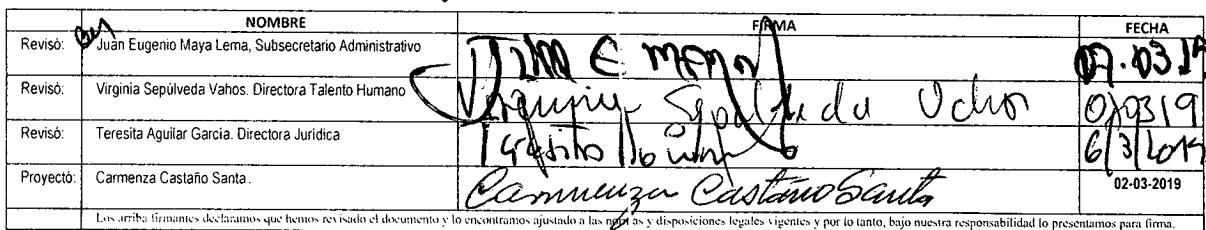 NOMBRE FIRMA FECHA
Revisó: Juan Eugenio Maya Lema, Subsecretario Administrativo JUAN E MAYA 07.03.19
Revisó: Virginia Sepúlveda Vahos. Directora Talento Humano Virginia Sepúlveda Vahos
Revisó: Teresita Aguilar García. Directora Jurídica Teresita 6/3/2019
Proyectó: Carmenza Castaño Santa. Carmenza Castaño Santa 02-03-2019
Los arriba firmantes declaramos que hemos revisado el documento y lo encontramos ajustado a las normas y disposiciones legales vigentes y por lo tanto, bajo nuestra responsabilidad lo presentamos para firma.